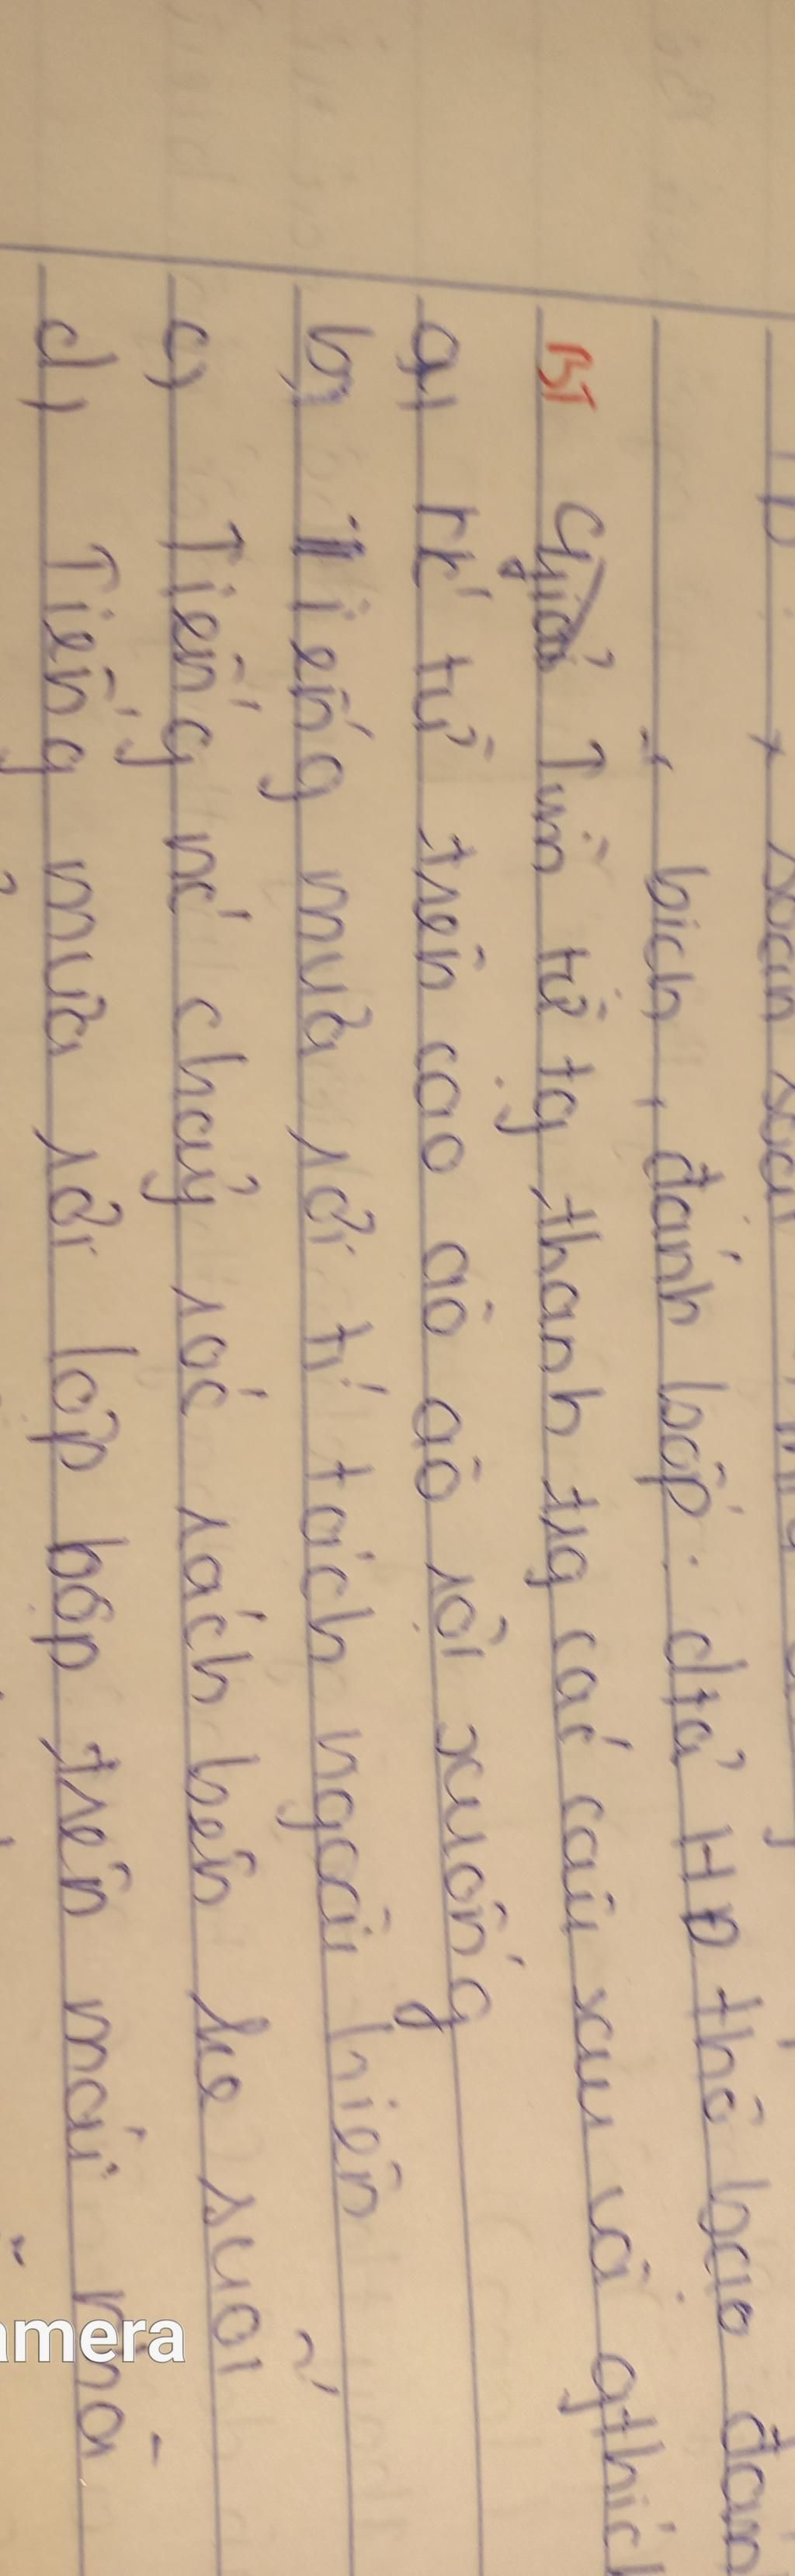 + bịch, đánh bốp. dtả HĐ thô bạo đán
B1 Tìm từ tg thanh trg các câu sau và gthích
a, nc' từ trên cao ào ào rồi xuống
b, Tiếng mưa rơi tí tách ngoài hiên
c, Tiếng nc' chảy róc rách bên khe suối
d, Tiếng mưa rơi lộp bộp trên mái nhà
amera